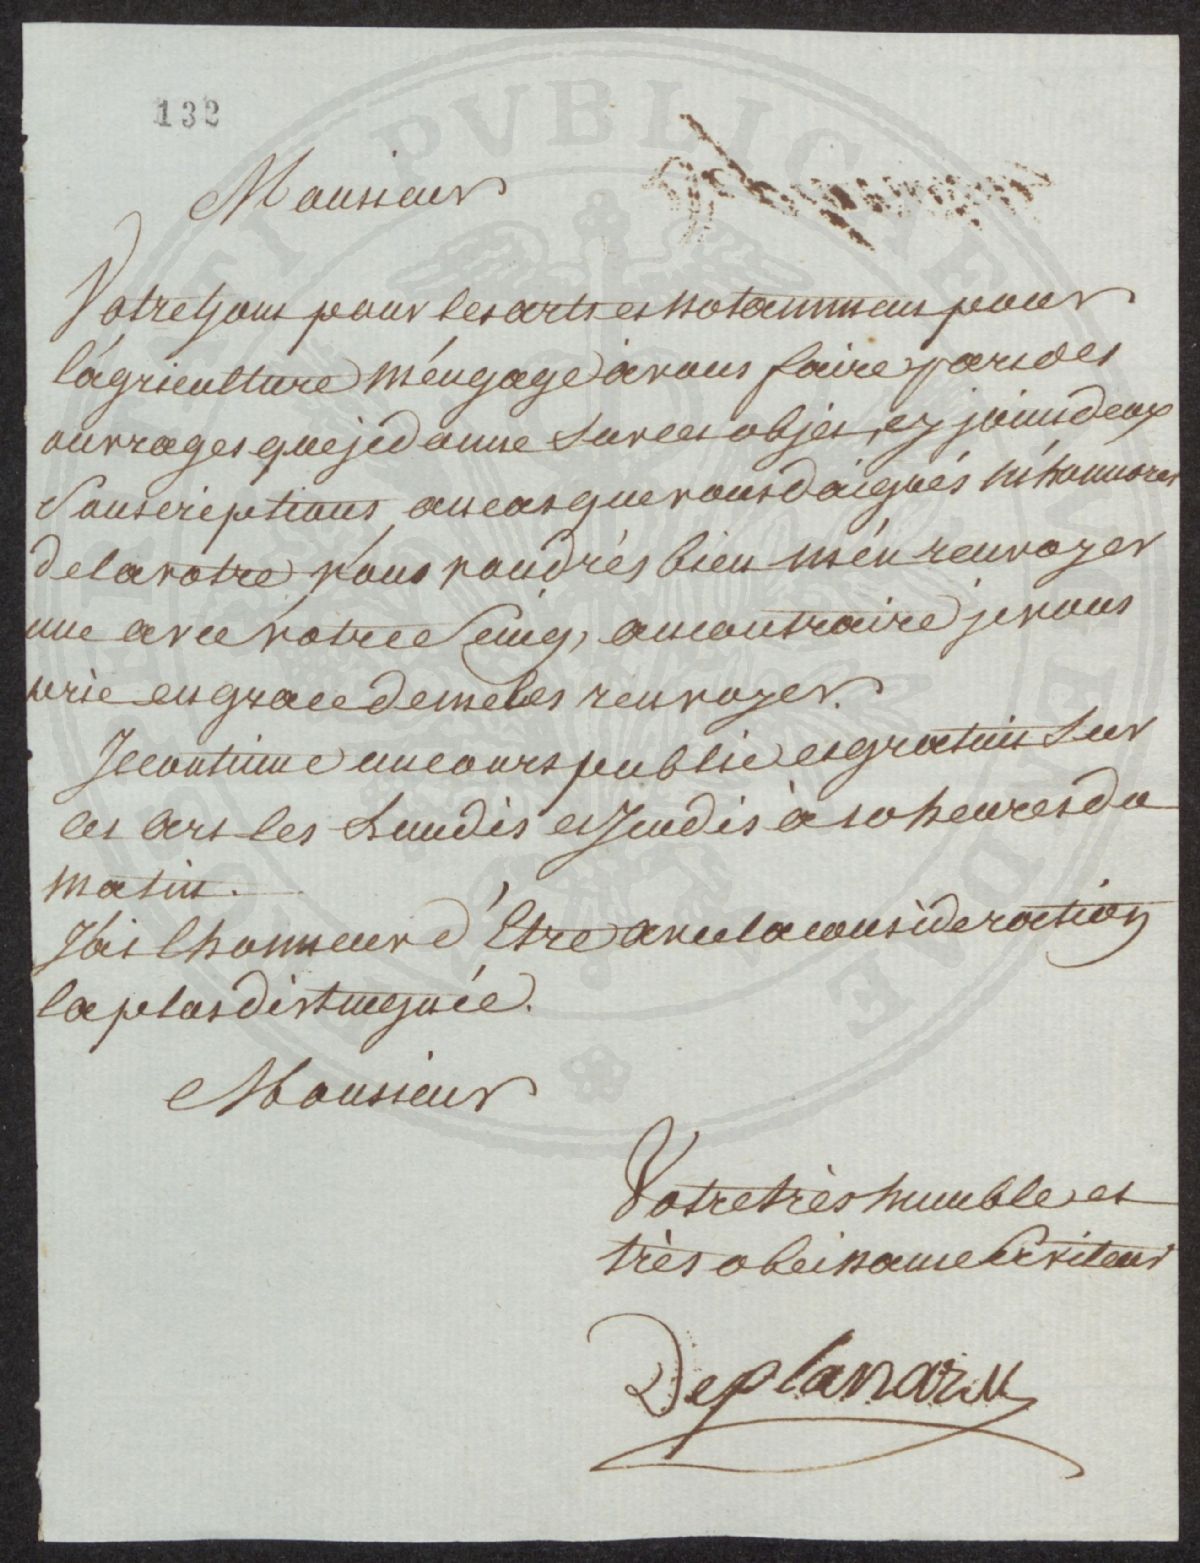 132
Monsieur
Votre gout pour les arts et notamment pour
l'agriculture m'éngage à vous faire part des
ouvrages que je donne sur ces objet, cy joint deux
Souscriptions, au cas que vous daignés m'honnorer
de la votre vous voudrés bien m'én renvoyer
une avec votre Seing, au contraire je vous
prie en grace de me les renvoyer.
Je continue un cours public et gratuit sur
les arts les Lundis et Jeudis à 10 heures du
matin.
J'ai l'honneur d'Etre avec la considération
la plus distinguée.
Monsieur
Votre très humble et
très obeissant Serviteur
PVBLICAE